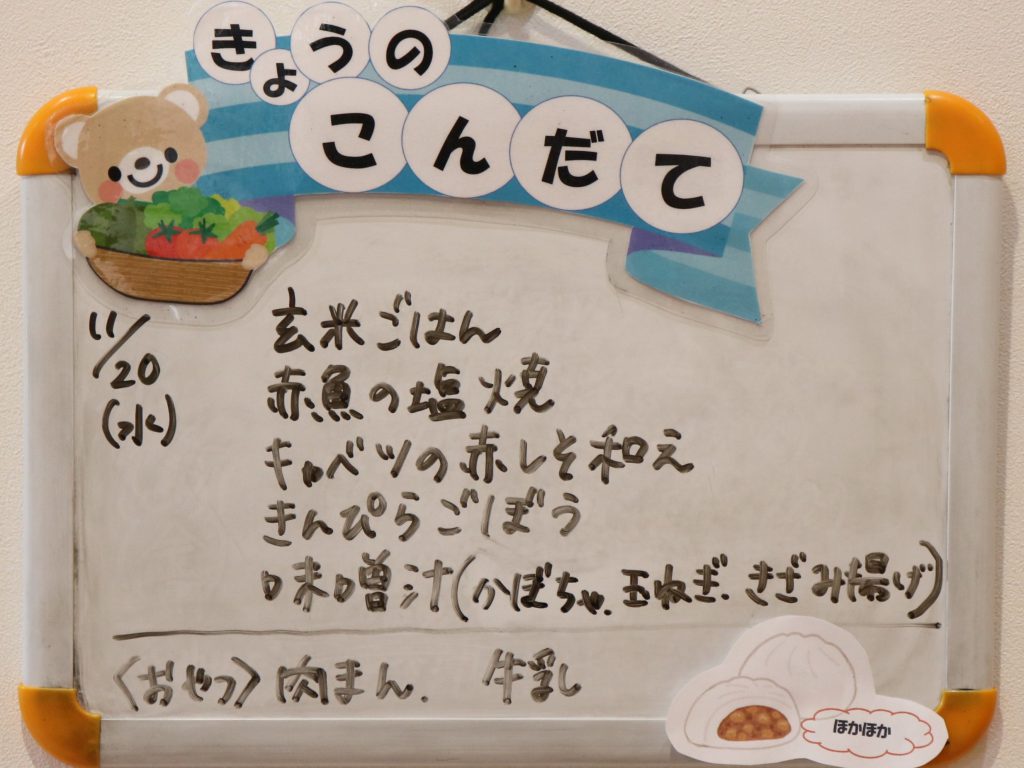 きょうの
こんだて
11/20
(水)
玄米ごはん
赤魚の塩焼
キャベツの赤しそ和え
きんぴらごぼう
味噌汁(かぼちゃ、玉ねぎ、きざみ揚げ)
〈おやつ〉肉まん、牛乳
ほかほか